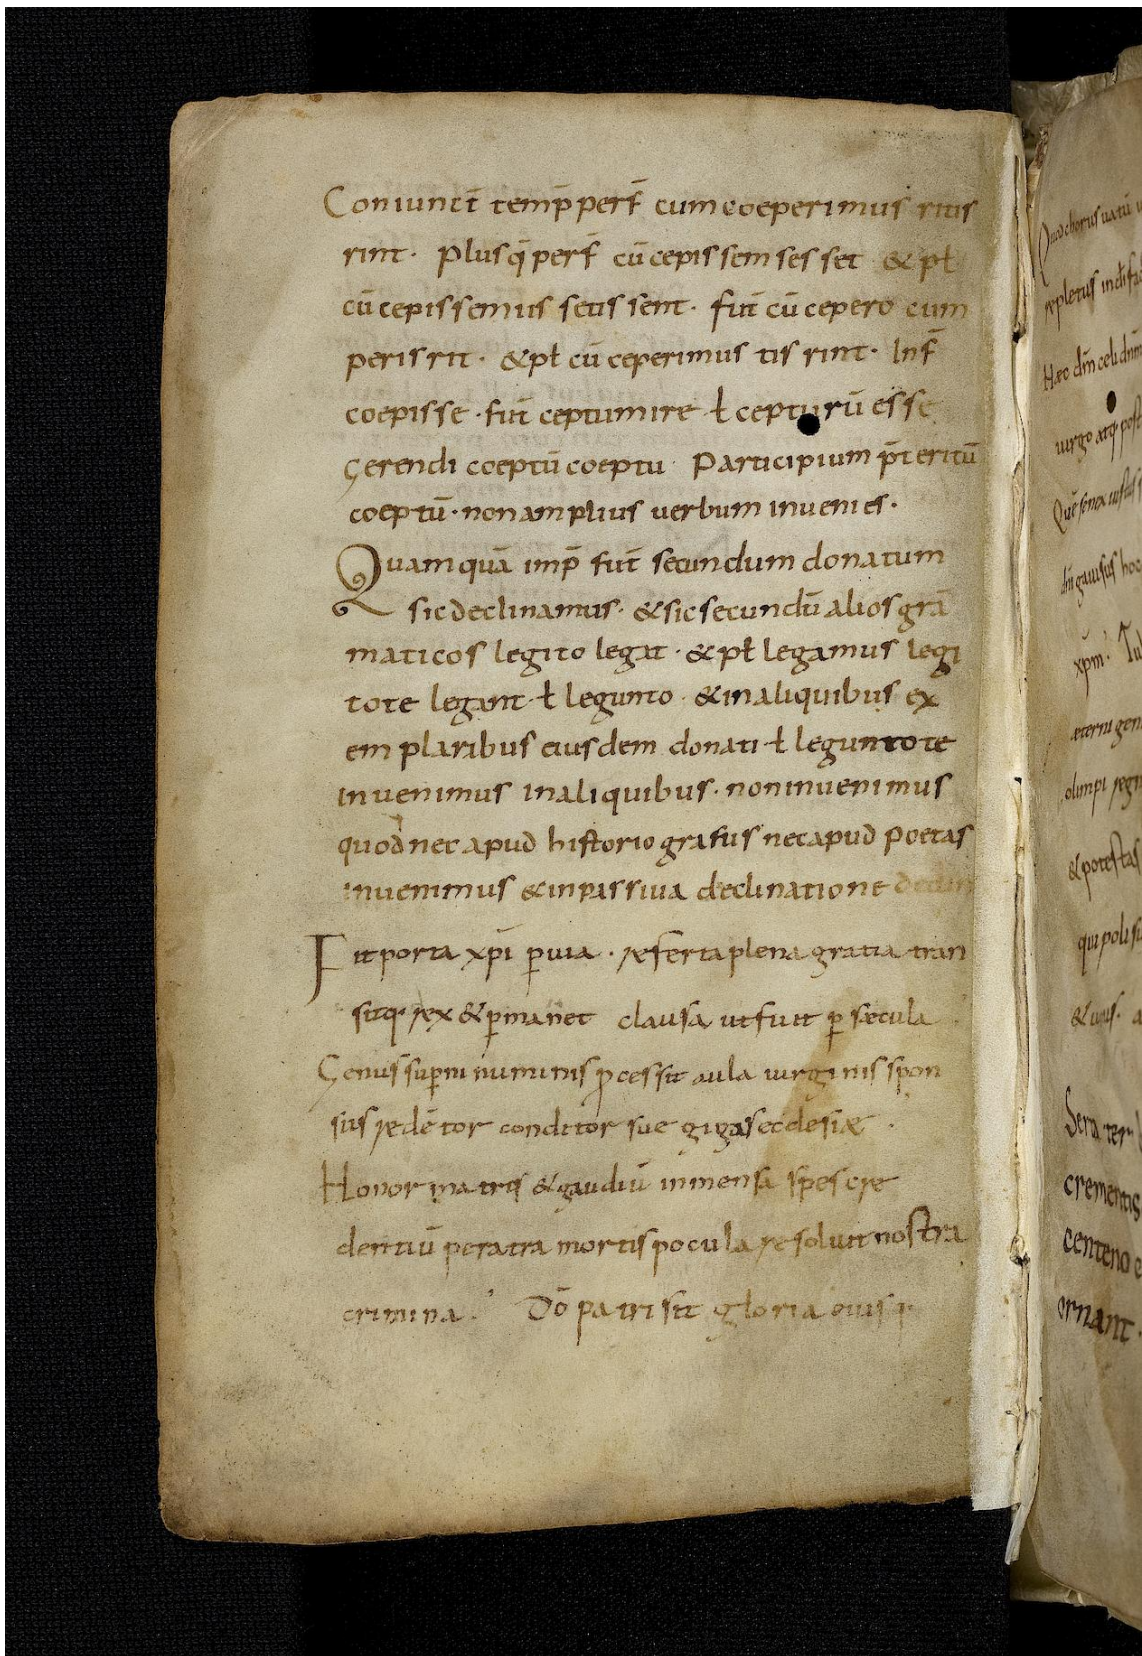 Coniunct̄ temp̄ perf̄ cum coeperimus ritis
rint· Plusq̄perf̄ cū cepissem ses set & pł
cū cepissemus setis sent· fut̄ cū cepero cum
peris rit· & pł cū ceperimus tis rint· Inf̄
coepisse· fut̄ ceptum ire ł cepturū esse
Gerendi coeptū coeptu Participium p̄teritū
coeptū· non amplius uerbum inuenies·
Quamquā imp̄ fut̄ secundum donatum
sic declinamus· & sic secundū alios gra
maticos legito legat· & pł legamus legi
tote legant ł legunto· & in aliquibus ex
emplaribus eiusdem donati ł leguntote
inuenimus in aliquibus· non inuenimus
quod nec apud historiografus nec apud poetas
inuenimus & in passiua declinatione
Fit porta xp̄i p̱uia· referta plena gratia tran
sitq· rex & p̱manet clausa ut fuit p̱ sæcula
Genus sup̱ni numinis p̱cessit aula uirginis spon
sus redētor conditor sue gigas ecclesiæ·
Honor matris & gaudiū inmensa spes cre
dentiū per atra mortis pocula resoluit nostra
crimina· Dō patri sit gloria eius
Quod chorus uatū
repletus
Hæc dn̄m celi
uirgo atq· post
Quē senex iustus
dn̄i gauisus hoc
xp̄m·
æterni
olimpi
& potestas
qui poli
& unus·
Sera
crementis
centeno
ornant·